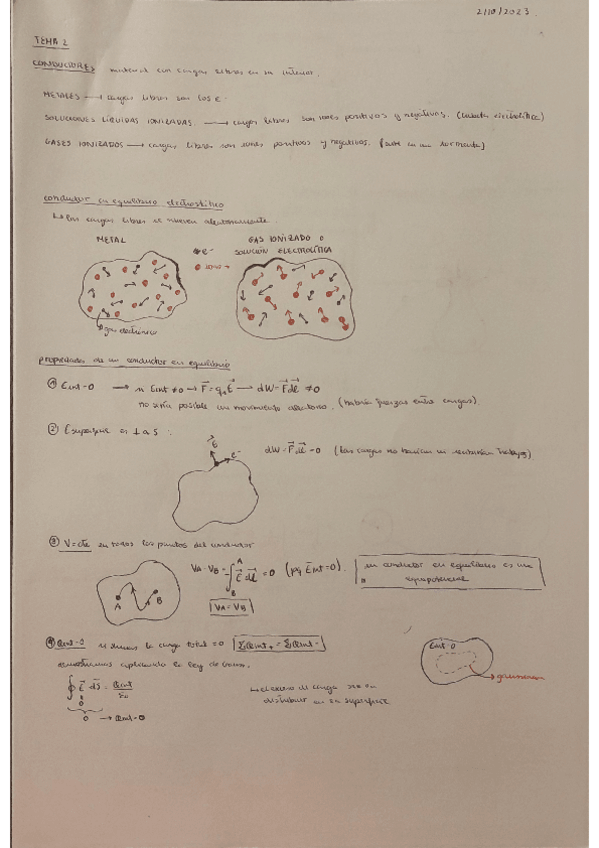 2/10/2023
TEMA 2
CONDUCTORES material con cargas libres en su interior.
METALES → cargas libres son los e-
SOLUCIONES LÍQUIDAS IONIZADAS. → cargas libres son iones positivos y negativos. (cubeta electrolítica)
GASES IONIZADOS → cargas libres son iones positivos y negativos. (aire en una tormenta)
conductor en equilibrio electrostático
↳ las cargas libres se mueven aleatoriamente.
METAL
e-
iones +
GAS IONIZADO o
SOLUCIÓN ELECTROLÍTICA
gas electrónico
propiedades de un conductor en equilibrio
① Eint=0 → si Eint ≠ 0 → F = q·E → dW = F dl ≠ 0
no sería posible un movimiento aleatorio. (habría fuerzas entre cargas)
② Esuperficie es ⊥ a S :
E
e-
dW = F·dl = 0 (las cargas no realizan trabajo)
③ V=cte en todos los puntos del conductor
A B
VA - VB = ∫ E dl = 0 (pq Eint=0).
VA = VB
un conductor en equilibrio es una equipotencial
④ Qint=0 la carga total = 0 ΣQint+ = ΣQint-
aplicando la ley de Gauss.
∮ E dS = Qint/ε0
0
0 → Qint=0
↳ el exceso de carga se va
distribuir en su superficie
Eint=0
gaussiana